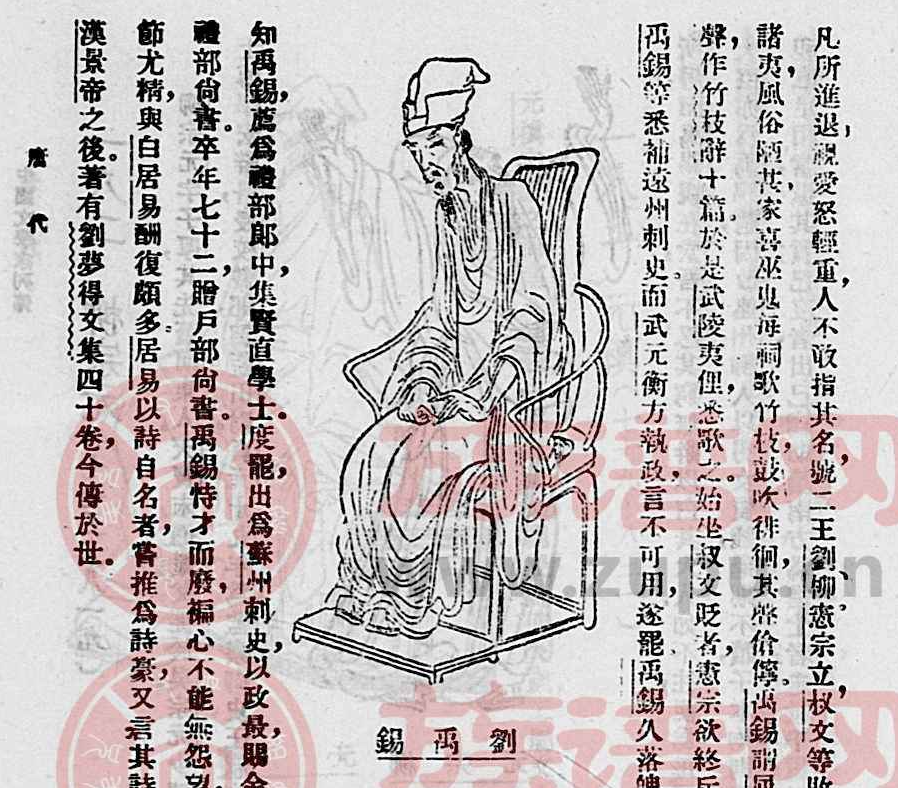 凡所進退,視愛怒輕重,人不敢指其名,號二王、劉、柳。憲宗立,叔文等敗
諸夷風俗陋甚,家喜巫鬼,每祠,歌竹枝,鼓吹徘徊,其聲傖儜。禹錫謂屈
聲,作竹枝辭十篇。於是武陵夷俚悉歌之。始坐叔文貶者,憲宗欲終斥
禹錫等悉補遠州刺史。而武元衡方執政,言不可用,遂罷。禹錫久落魄
劉禹錫
知禹錫,薦爲禮部郎中,集賢直學士。度罷,出爲蘇州刺史,以政最,賜金
禮部尙書。卒年七十二,贈戶部尙書。禹錫恃才而廢,褊心不能無怨望,
節尤精,與白居易酬復頗多。居易以詩自名者,嘗推爲詩豪,又言其詩
漢景帝之後。著有劉夢得文集四十卷,今傳於世。
唐代
族譜网
www.zupu.cn
族譜网